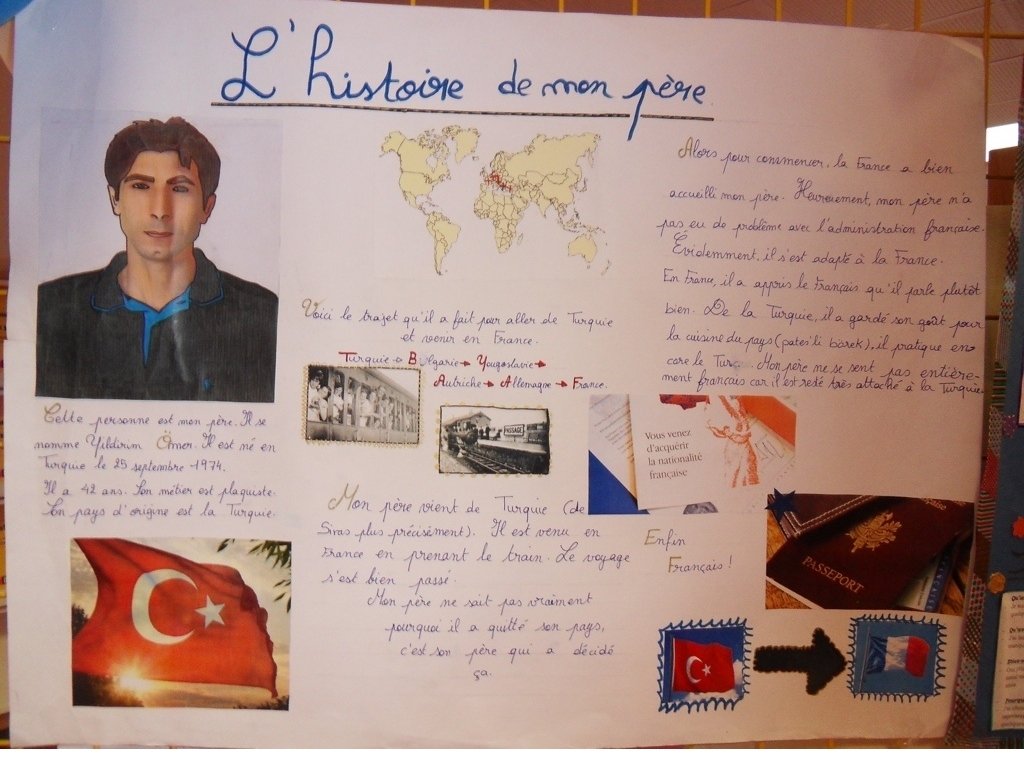 L'histoire de mon père.
Cette personne est mon père. Il se
nomme Yildirim Ömer. Il est né en
Turquie le 25 septembre 1974.
Il a 42 ans. Son métier est plaquiste.
Son pays d'origine est la Turquie.
Voici le trajet qu'il a fait pour aller de Turquie
et venir en France.
Turquie → Bulgarie → Yougoslavie →
Autriche → Allemagne → France.
PASSAGE
Mon père vient de Turquie (de
Sivas plus précisément). Il est venu en
France en prenant le train. Le voyage
s'est bien passé.
Mon père ne sait pas vraiment
pourquoi il a quitté son pays,
c'est son père qui a décidé
ça.
Alors pour commencer, la France a bien
accueilli mon père. Heureusement, mon père n'a
pas eu de problème avec l'administration française.
Évidemment, il s'est adapté à la France.
En France, il a appris le Français qu'il parle plutôt
bien. De la Turquie, il a gardé son goût pour
la cuisine du pays (pates li börek), il pratique en
core le Turc. Mon père ne se sent pas entière-
ment français car il est resté très attaché à la Turquie.
Vous venez
d'acquérir
la nationalité
française
Enfin
Français !
PASSEPORT